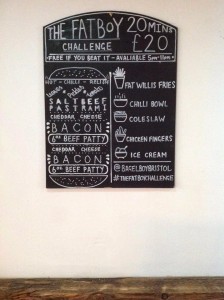 THE FATBOY
CHALLENGE
20 MINS
£20
FREE IF YOU BEAT IT - AVALIABLE 5pm-11pm
SALT BEEF
PASTRAMI
CHEDDAR CHEESE
BACON
6oz BEEF PATTY
CHEDDAR CHEESE
BACON
6oz BEEF PATTY
FAT WILLIS FRIES
CHILLI BOWL
COLESLAW
CHICKEN FINGERS
ICE CREAM
@BAGELBOYBRISTOL
#THEFATBOYCHALLENGE